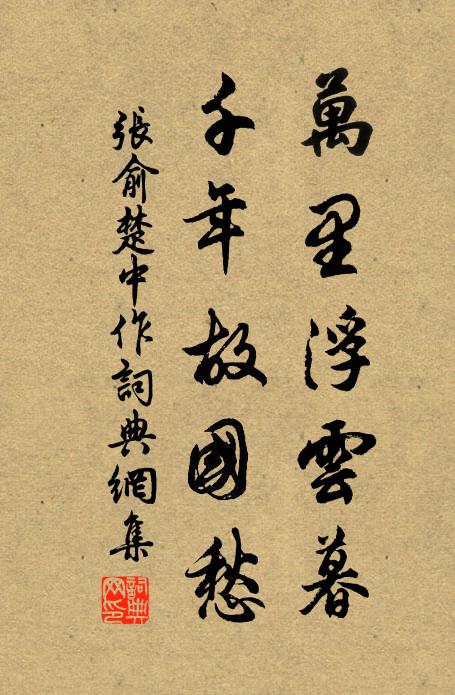 萬里浮雲暮
千年故國愁
張俞楚中作詞典網集
詞典
网印